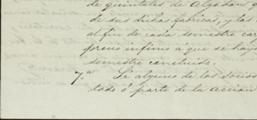 de quintales de Algodon q
de sus dichas fabricas, y las
al fin de cada semestre car
precio infimo á que se haya
semestre construido.
7.º Si alguno de los socios
todo ó parte de la accion